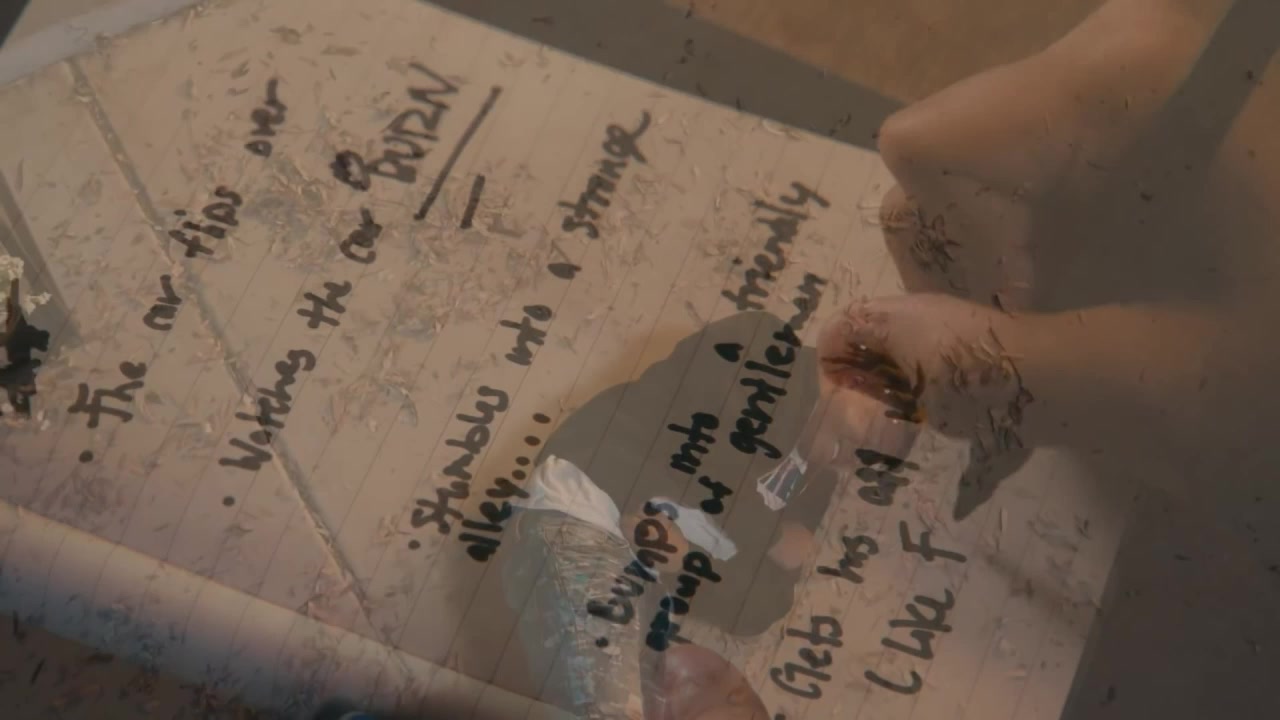 • The car flips over
• Watches the car BURN
• Stumbles into a strange
alley....
• bumps into a friendly
group or gentleman
Gets his
(Like F